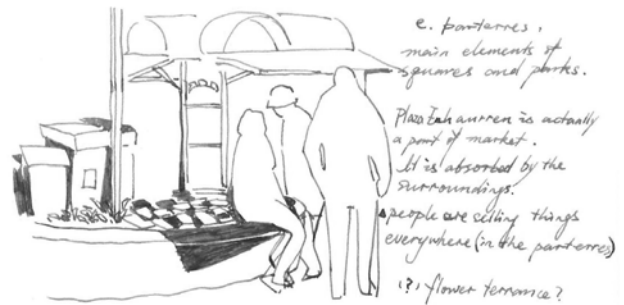 e. parterres,
main elements of
squares and parks.
Plaza Echaurren is actually
a point of market.
It is absorbed by the
surroundings.
people are selling things
everywhere (in the parterres)
(?) flower terrance?